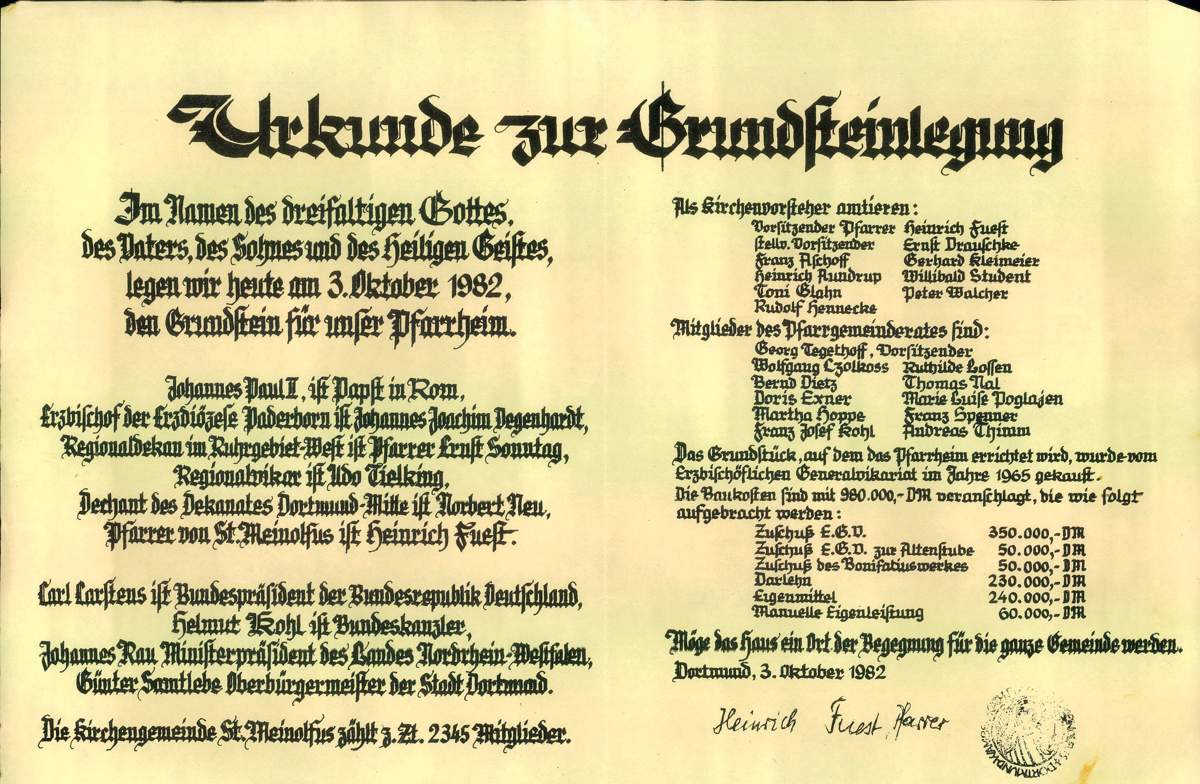 Urkunde zur Grundsteinlegung
Im Namen des dreifaltigen Gottes,
des Vaters, des Sohnes und des Heiligen Geistes,
legen wir heute am 3. Oktober 1982,
den Grundstein für unser Pfarrheim.
Johannes Paul II, ist Papst in Rom,
Erzbischof der Erzdiözese Paderborn ist Johannes Joachim Degenhardt,
Regionaldekan im Ruhrgebiet-West ist Pfarrer Ernst Sonntag,
Regionalvikar ist Udo Tielking,
Dechant des Dekanates Dortmund-Mitte ist Norbert Neu,
Pfarrer von St. Meinolfus ist Heinrich Fuest.
Carl Carstens ist Bundespräsident der Bundesrepublik Deutschland,
Helmut Kohl ist Bundeskanzler,
Johannes Rau Ministerpräsident des Landes Nordrhein-Westfalen,
Günter Samtlebe Oberbürgermeister der Stadt Dortmund.
Die Kirchengemeinde St. Meinolfus zählt z. Zt. 2345 Mitglieder.
Als Kirchenvorsteher amtieren:
Vorsitzender Pfarrer Heinrich Fuest
stellv. Vorsitzender Ernst Drauschke
Franz Aschoff Gerhard Kleimeier
Heinrich Aundrup Willibald Student
Toni Glahn Peter Walcher
Rudolf Hennecke
Mitglieder des Pfarrgemeinderates sind:
Georg Tegethoff, Vorsitzender
Wolfgang Czolkoss Ruthilde Lossen
Bernd Dietz Thomas Nal
Doris Exner Marie Luise Poglajen
Martha Hoppe Franz Spenner
Franz Josef Kohl Andreas Thimm
Das Grundstück, auf dem das Pfarrheim errichtet wird, wurde vom
Erzbischöflichen Generalvikariat im Jahre 1965 gekauft.
Die Baukosten sind mit 980.000,-DM veranschlagt, die wie folgt
aufgebracht werden:
Zuschuß E.G.V. 350.000,-DM
Zuschuß E.G.V. zur Altenstube 50.000,-DM
Zuschuß des Bonifatiuswerkes 50.000,-DM
Darlehn 230.000,-DM
Eigenmittel 240.000,-DM
Manuelle Eigenleistung 60.000,-DM
Möge das Haus ein Ort der Begegnung für die ganze Gemeinde werden.
Dortmund, 3. Oktober 1982
Heinrich Fuest, Pfarrer